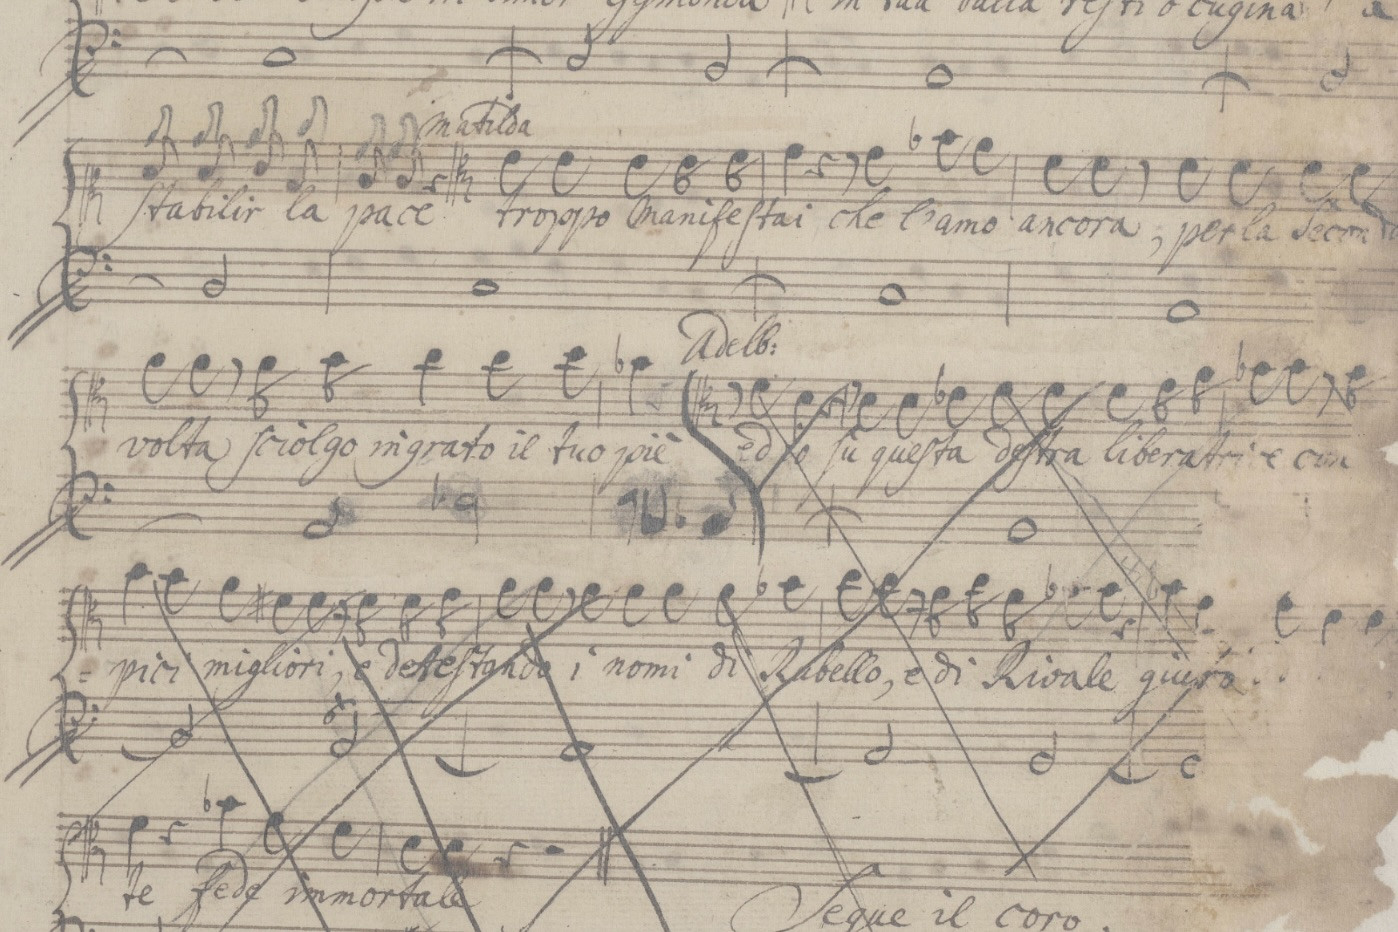 in tua balia resti o cugina
Matilda
stabilir la pace troppo manifestai che l'amo ancora, per la second
Adelb:
volta sciolgo ingrato il tuo piè ed io su questa destra liberatrice con
= pici migliori, e detestando i nomi di Rubello, e di Rivale giuro . . .
te fede immortale
Segue il coro.